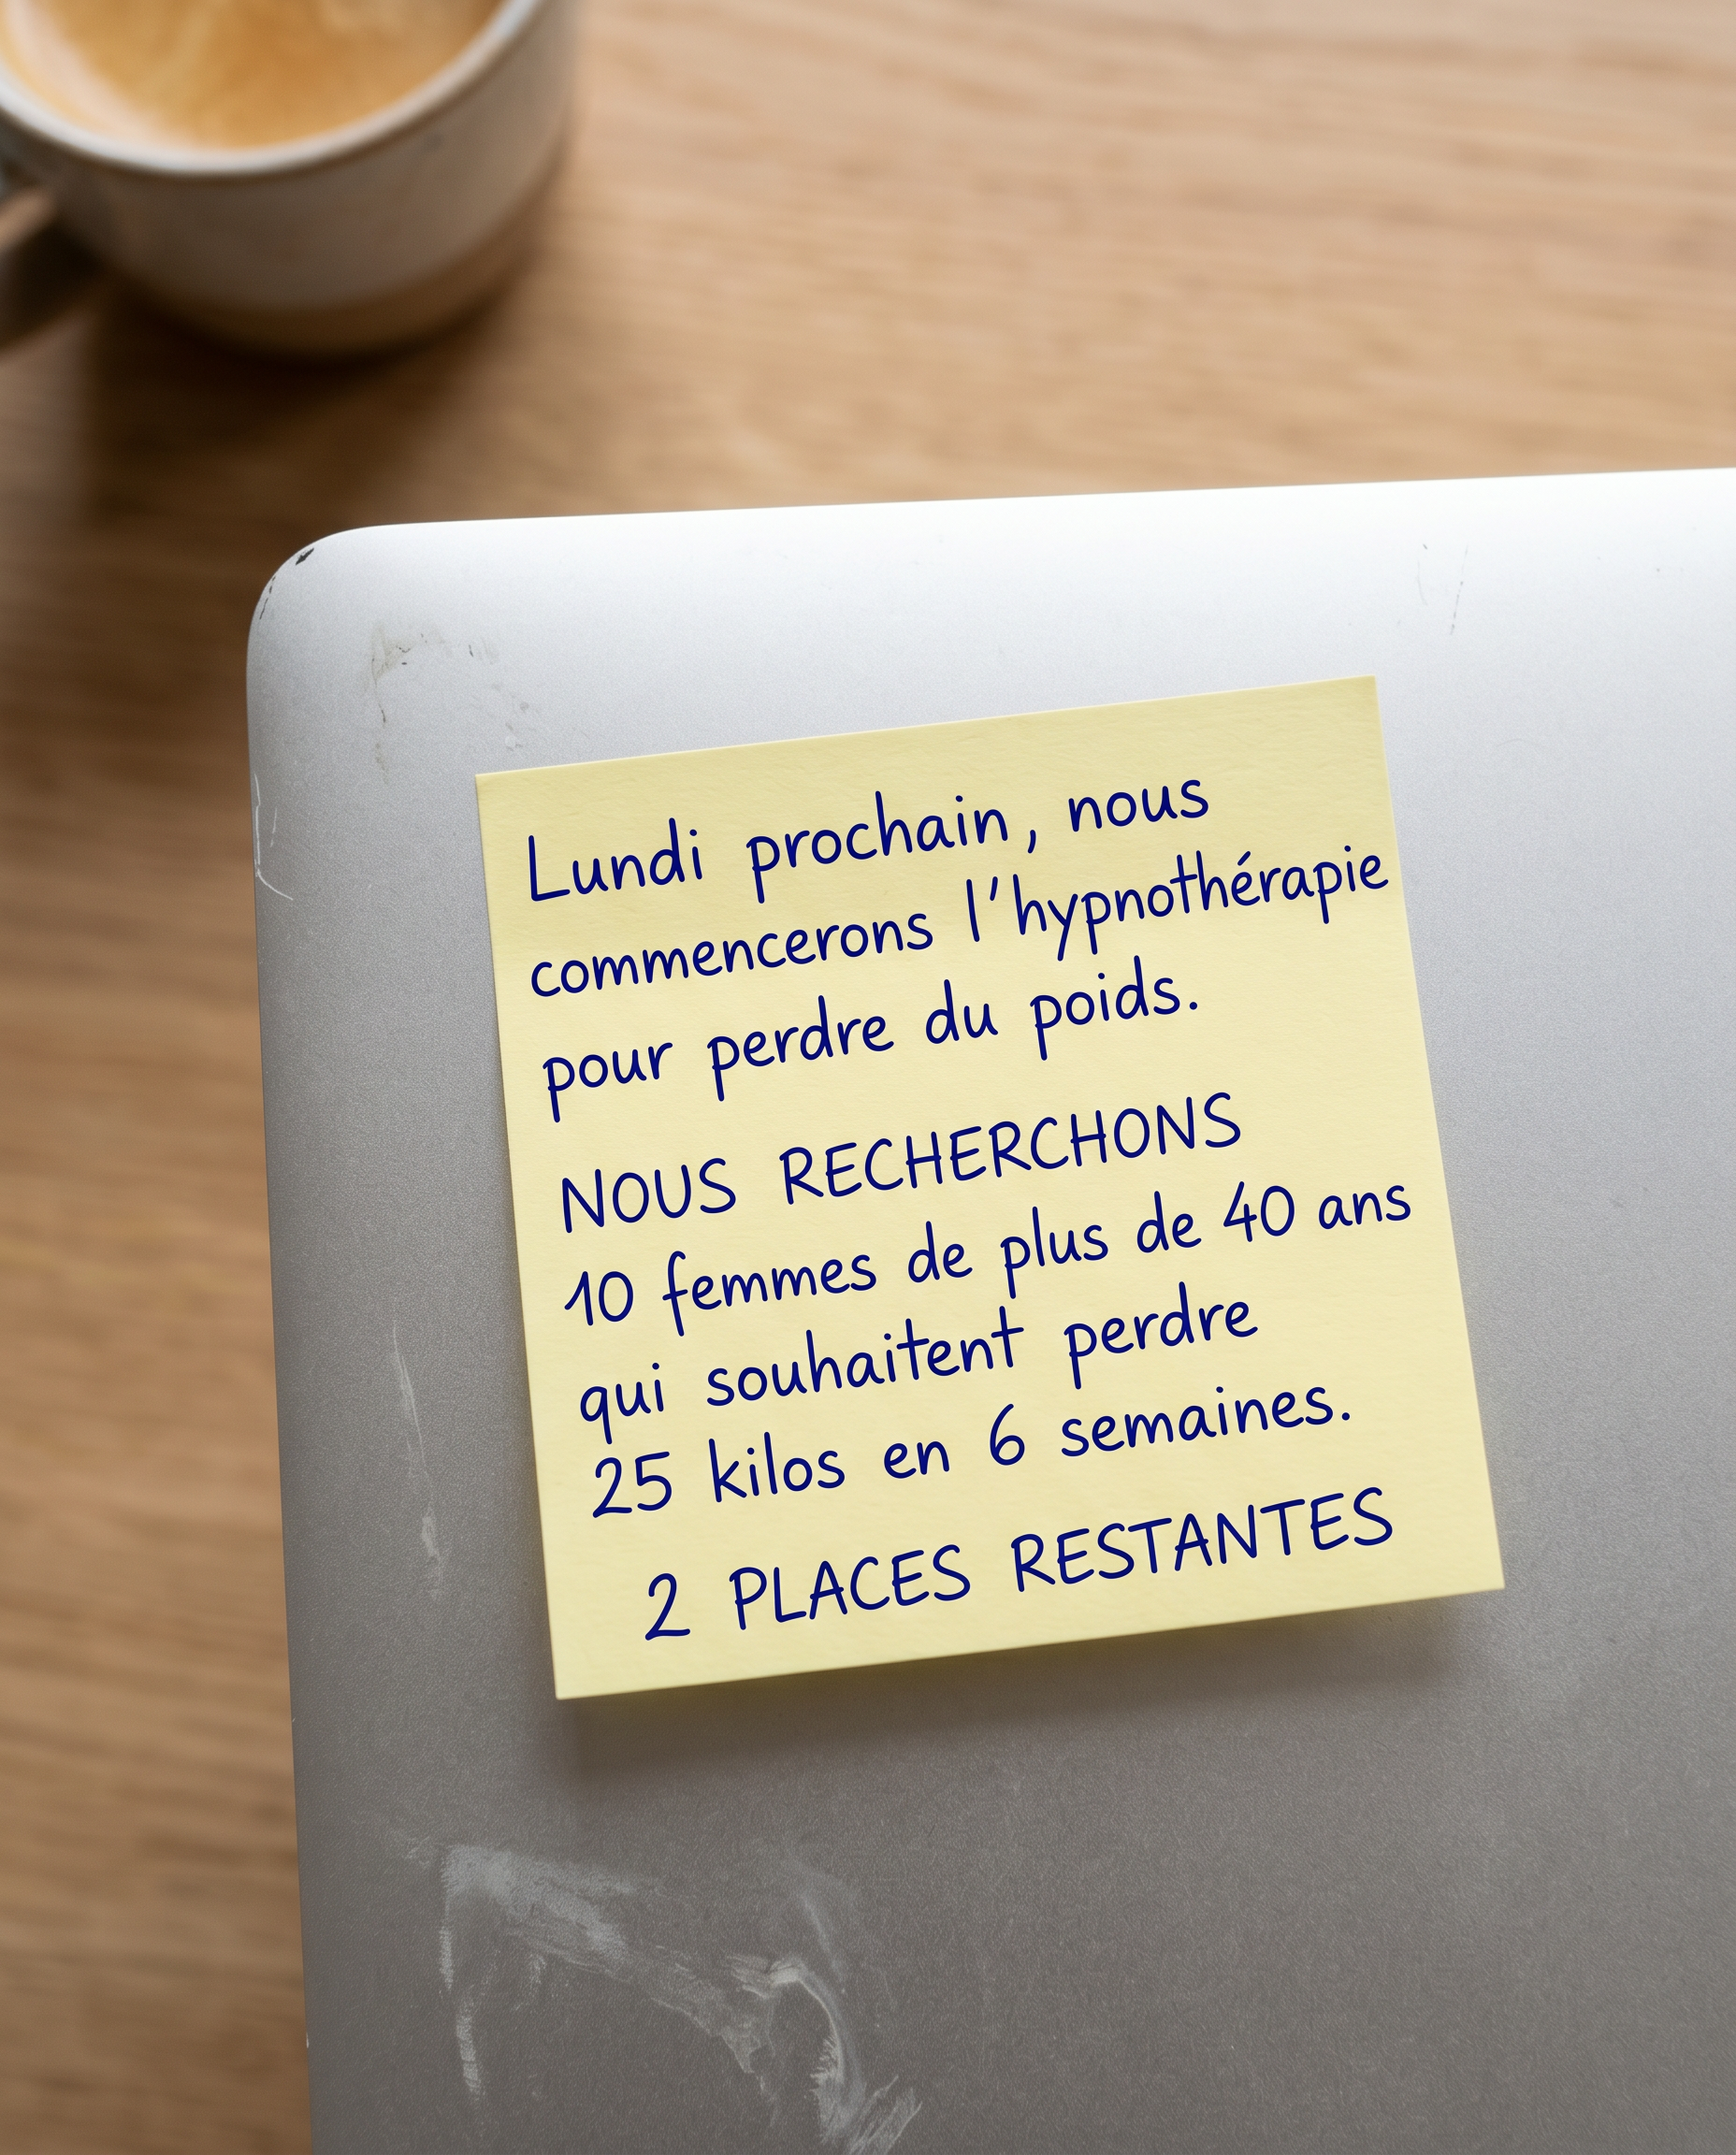 Lundi prochain, nous
commencerons l'hypnothérapie
pour perdre du poids.
NOUS RECHERCHONS
10 femmes de plus de 40 ans
qui souhaitent perdre
25 kilos en 6 semaines.
2 PLACES RESTANTES